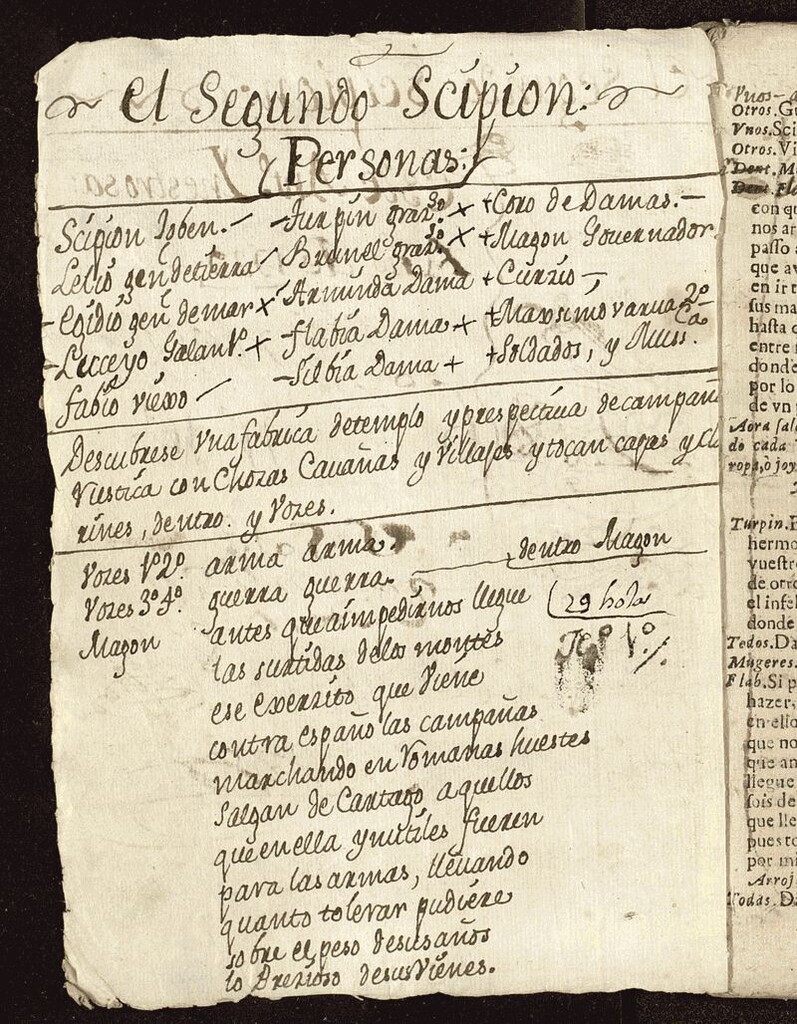 El Segundo Scipion:
Personas:
Scipion Joben. - Turpin grazo. + Coro de Damas.
Lelio genl de tierra - Brunel grazo. + Magon Governador
- Egidio genl de mar - Arminda Dama + Curzio -
- Lucceyo Galan 1º. - Flabia Dama + Maxsimo varua 2º
fabio viexo - Silbia Dama + Soldados, y Mussca.
Descubrese vna fabrica de templo y prespectiva de campaña
rustica con Chozas Cavañas y Villajes y tocan cajas y Cla
rines, dentro. y Vozes.
Vozes 1º 2º. arma arma.
Vozes 3º 4º. guerra guerra. dentro Magon
Magon antes que a impedirnos llegue
29 hola
las surtidas de los montes
Jº 1º.
ese exerzito que viene
contra españo las campañas
marchando en Romanas huestes
salgan de Cartago aquellos
que en ella ynutiles fueren
para las armas, lleuando
quanto tolerar pudiere
sobre el peso de sus años
lo Prezioso de sus Vienes.
Vnos
Otros. G
Vnos. Sci
Otros. Vi
Dent. M
Dent. Fla
con q
nos ar
passo
que av
en ir t
sus ma
hasta
entre
donde
por lo
de vn
Aora sal
do cada
ropa, ò joy
Turpin. P
hermo
vuestr
de otro
el infel
donde
Todos. Da
Mugeres.
Flab. Si p
hazer,
en ello
que no
que an
llegue
sois de
que lle
puesto
por mi
Arroj
Todas. D